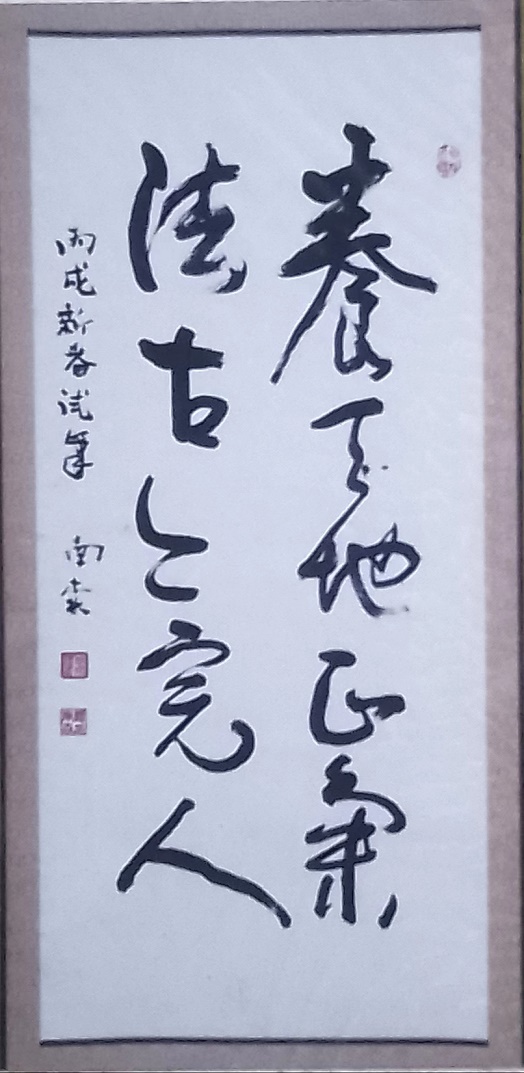 養天地正氣
法古今完人
丙戌新春试筆 南